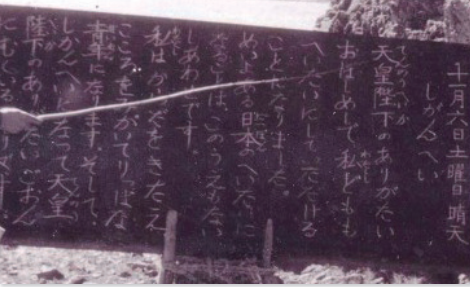 十一月六日土曜日晴天
しがんへい
天皇陛下のありがたい
おぼしめしで私どもも
へいたいにして、たゞける
ことになりました。
めいよある日本のへいたいに
なることは、このうえもない
しあわせです。
私はからだをきたえ
こころをみがいてりっぱな
青年になります。そして、
しがんへいになって天皇
陛下のありがたいごおん
にむくいる